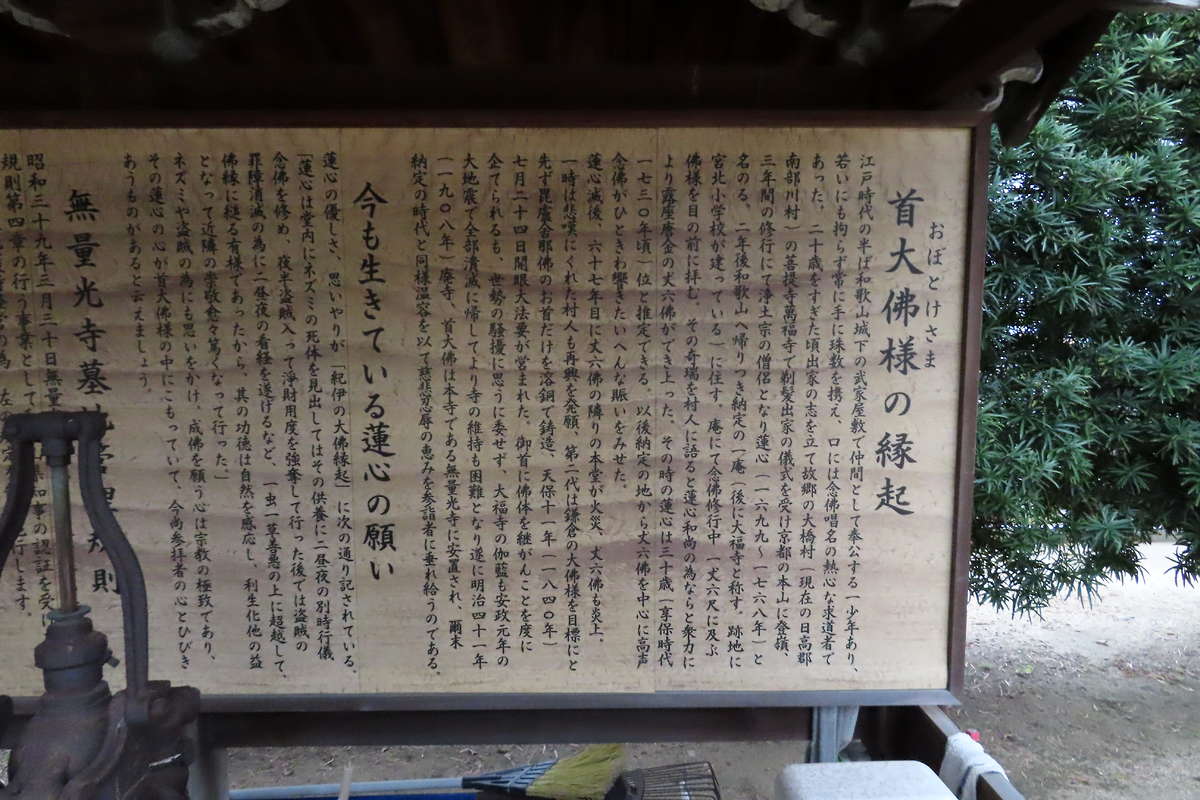 おぼとけさま
首大佛様の縁起
江戸時代の半ば和歌山城下の武家屋敷で仲間として奉公する一少年あり、
若いにも拘らず常に手に珠数を携え、口には念佛唱名の熱心な求道者で
あった。二十歳をすぎた頃出家の志を立て故郷の大橋村(現在の日高郡
南部川村)の菩提寺萬福寺で剃髪出家の儀式を受け京都の本山に登嶺
三年間の修行にて浄土宗の僧侶となり蓮心(一六九九〜一七六八年)と
名のる。二年後和歌山へ帰りつき納定の一庵(後に大福寺と称す。跡地に
宮北小学校が建っている)に住す。庵にて念佛修行中一丈六尺に及ぶ
佛様を目の前に拝む。その奇瑞を村人に語ると蓮心和尚の為ならと衆力に
より露座唐金の丈六佛ができ上った。その時の蓮心は三十歳(享保時代
一七三〇年頃)位と推定できる。以後納定の地から丈六佛を中心に高声
念佛がひときわ響きたいへんな賑いをみせた。
蓮心滅後、六十七年目に丈六佛の隣りの本堂が火災、丈六佛も炎上。
一時は悲嘆にくれた村人も再興を発願、第二代は鎌倉の大佛様を目標にと
先ず毘盧舎那佛のお首だけを溶銅で鋳造、天保十一年(一八四〇年)
七月二十四日開眼大法要が営まれた。御首に佛体を継がんことを度に
企てられるも、世勢の騒擾に思うに委せず、大福寺の伽藍も安政元年の
大地震で全部潰滅に帰してより寺の維持も困難となり遂に明治四十一年
(一九〇八年)廃寺、首大佛は本寺である無量光寺に安置され、爾来
納定の時代と同様温容を以て慈悲忍辱の恵みを参詣者に垂れ給うのである。
今も生きている蓮心の願い
蓮心の優しさ、思いやりが「紀伊の大佛縁起」に次の通り記されている。
「蓮心は堂内にネズミの死体を見出してはその供養に二昼夜の別時行儀
念佛を修め、夜半盗賊入って浄財用度を強奪して行った後では盗賊の
罪障消滅の為に二昼夜の看経を遂げるなど、一虫一草善悪の上に超越して、
佛縁に結る有様であったから、其の功徳は自然を應応し、利生化他の益
となって近隣の崇敬愈々篤くなって行った。」
ネズミや盗賊の為にも思いをかけ、成佛を願う心は宗教の極致であり、
その蓮心の心が首大佛様の中にこもっていて、今尚参拝者の心とひびき
あうものがあると云えましょう。
無量光寺墓
規則
昭和三十九年三月三十日無量
知事の認証を受け
規則第四章の行う事業として
行します。